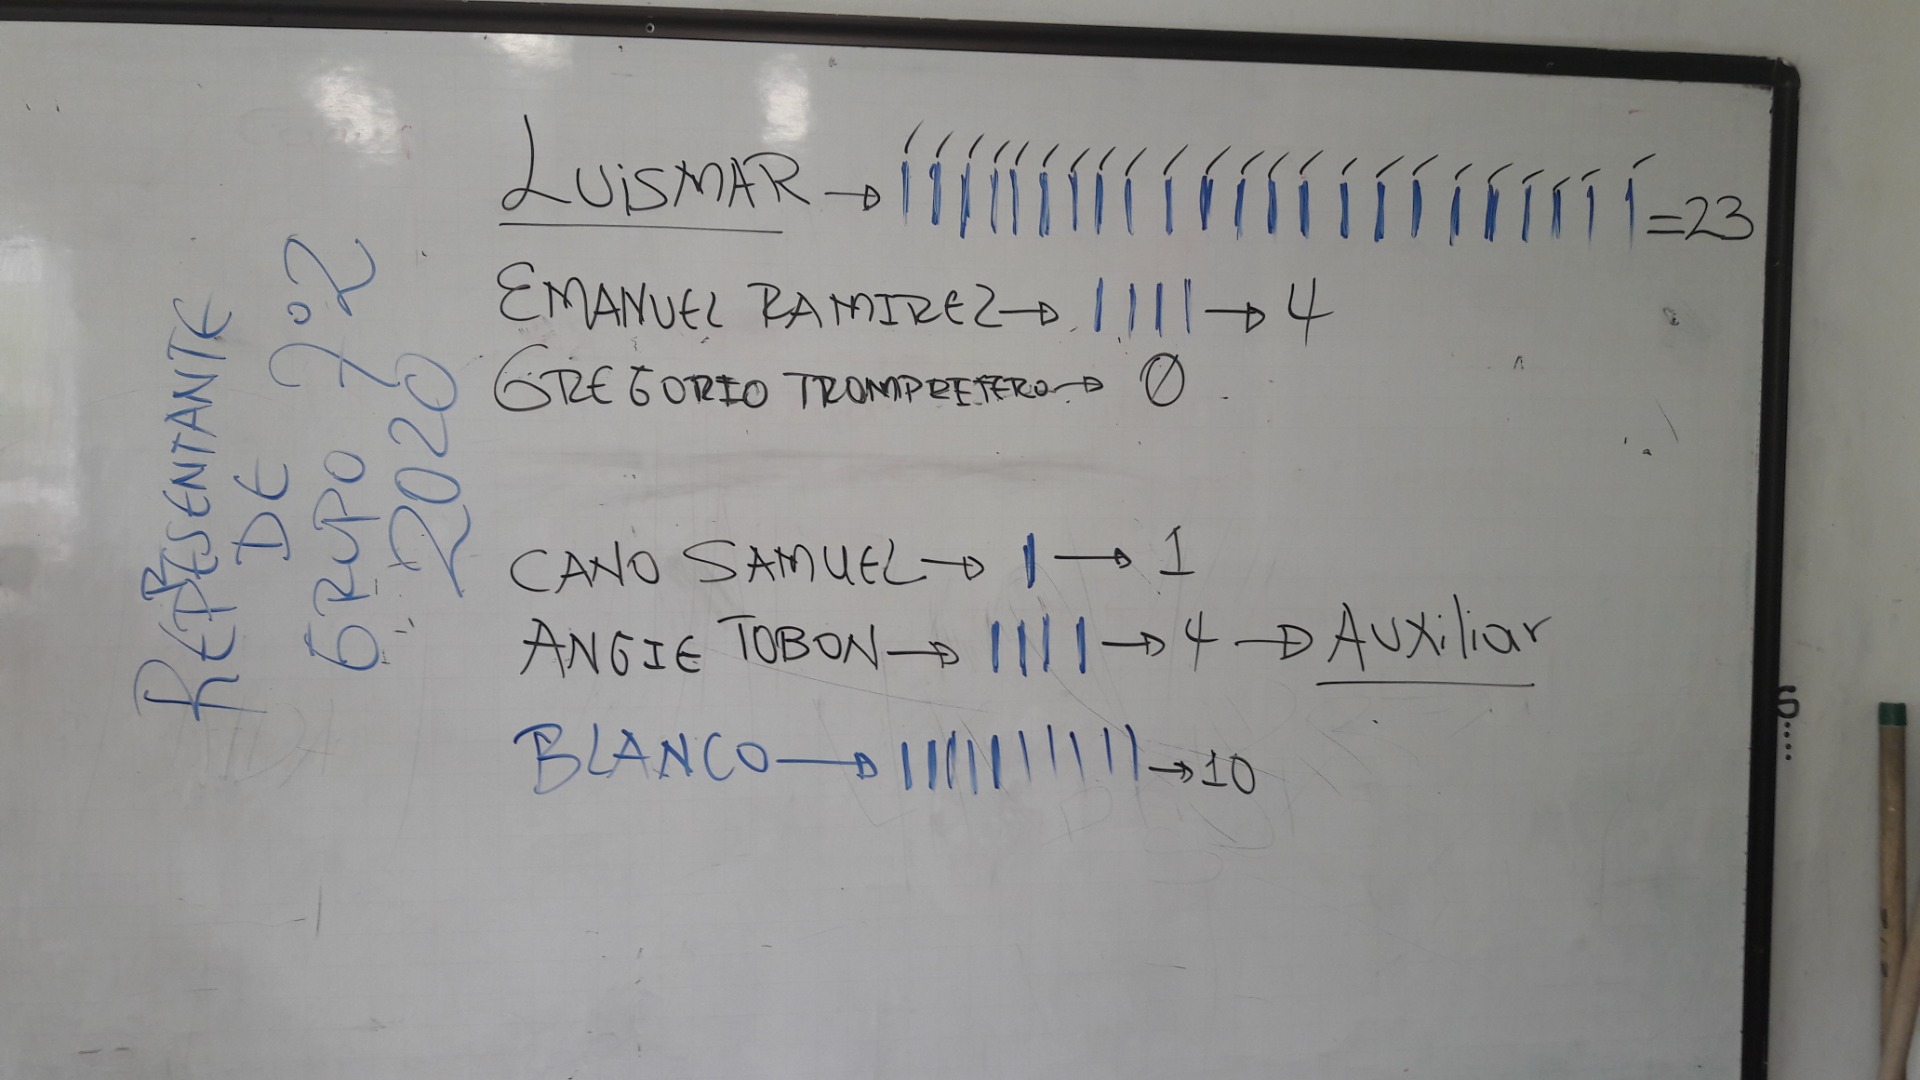 REPRESENTANTE
DE
GRUPO 7°2
2020
LUiSMAR → = 23
EMANUEL RAMIREZ → |||| → 4
GREGORIO → 0
CANO SAMUEL → | → 1
ANGIE TOBON → |||| → 4 → AUxiliar
BLANCO → → 10